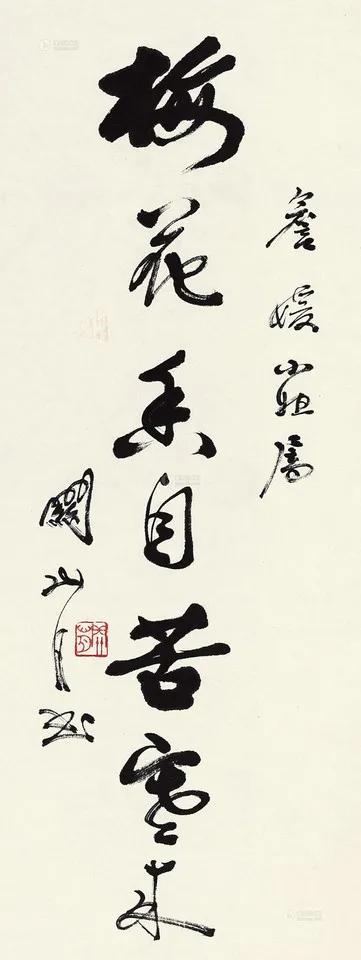 詹媛小姐属
梅花香自苦寒来
關山月书